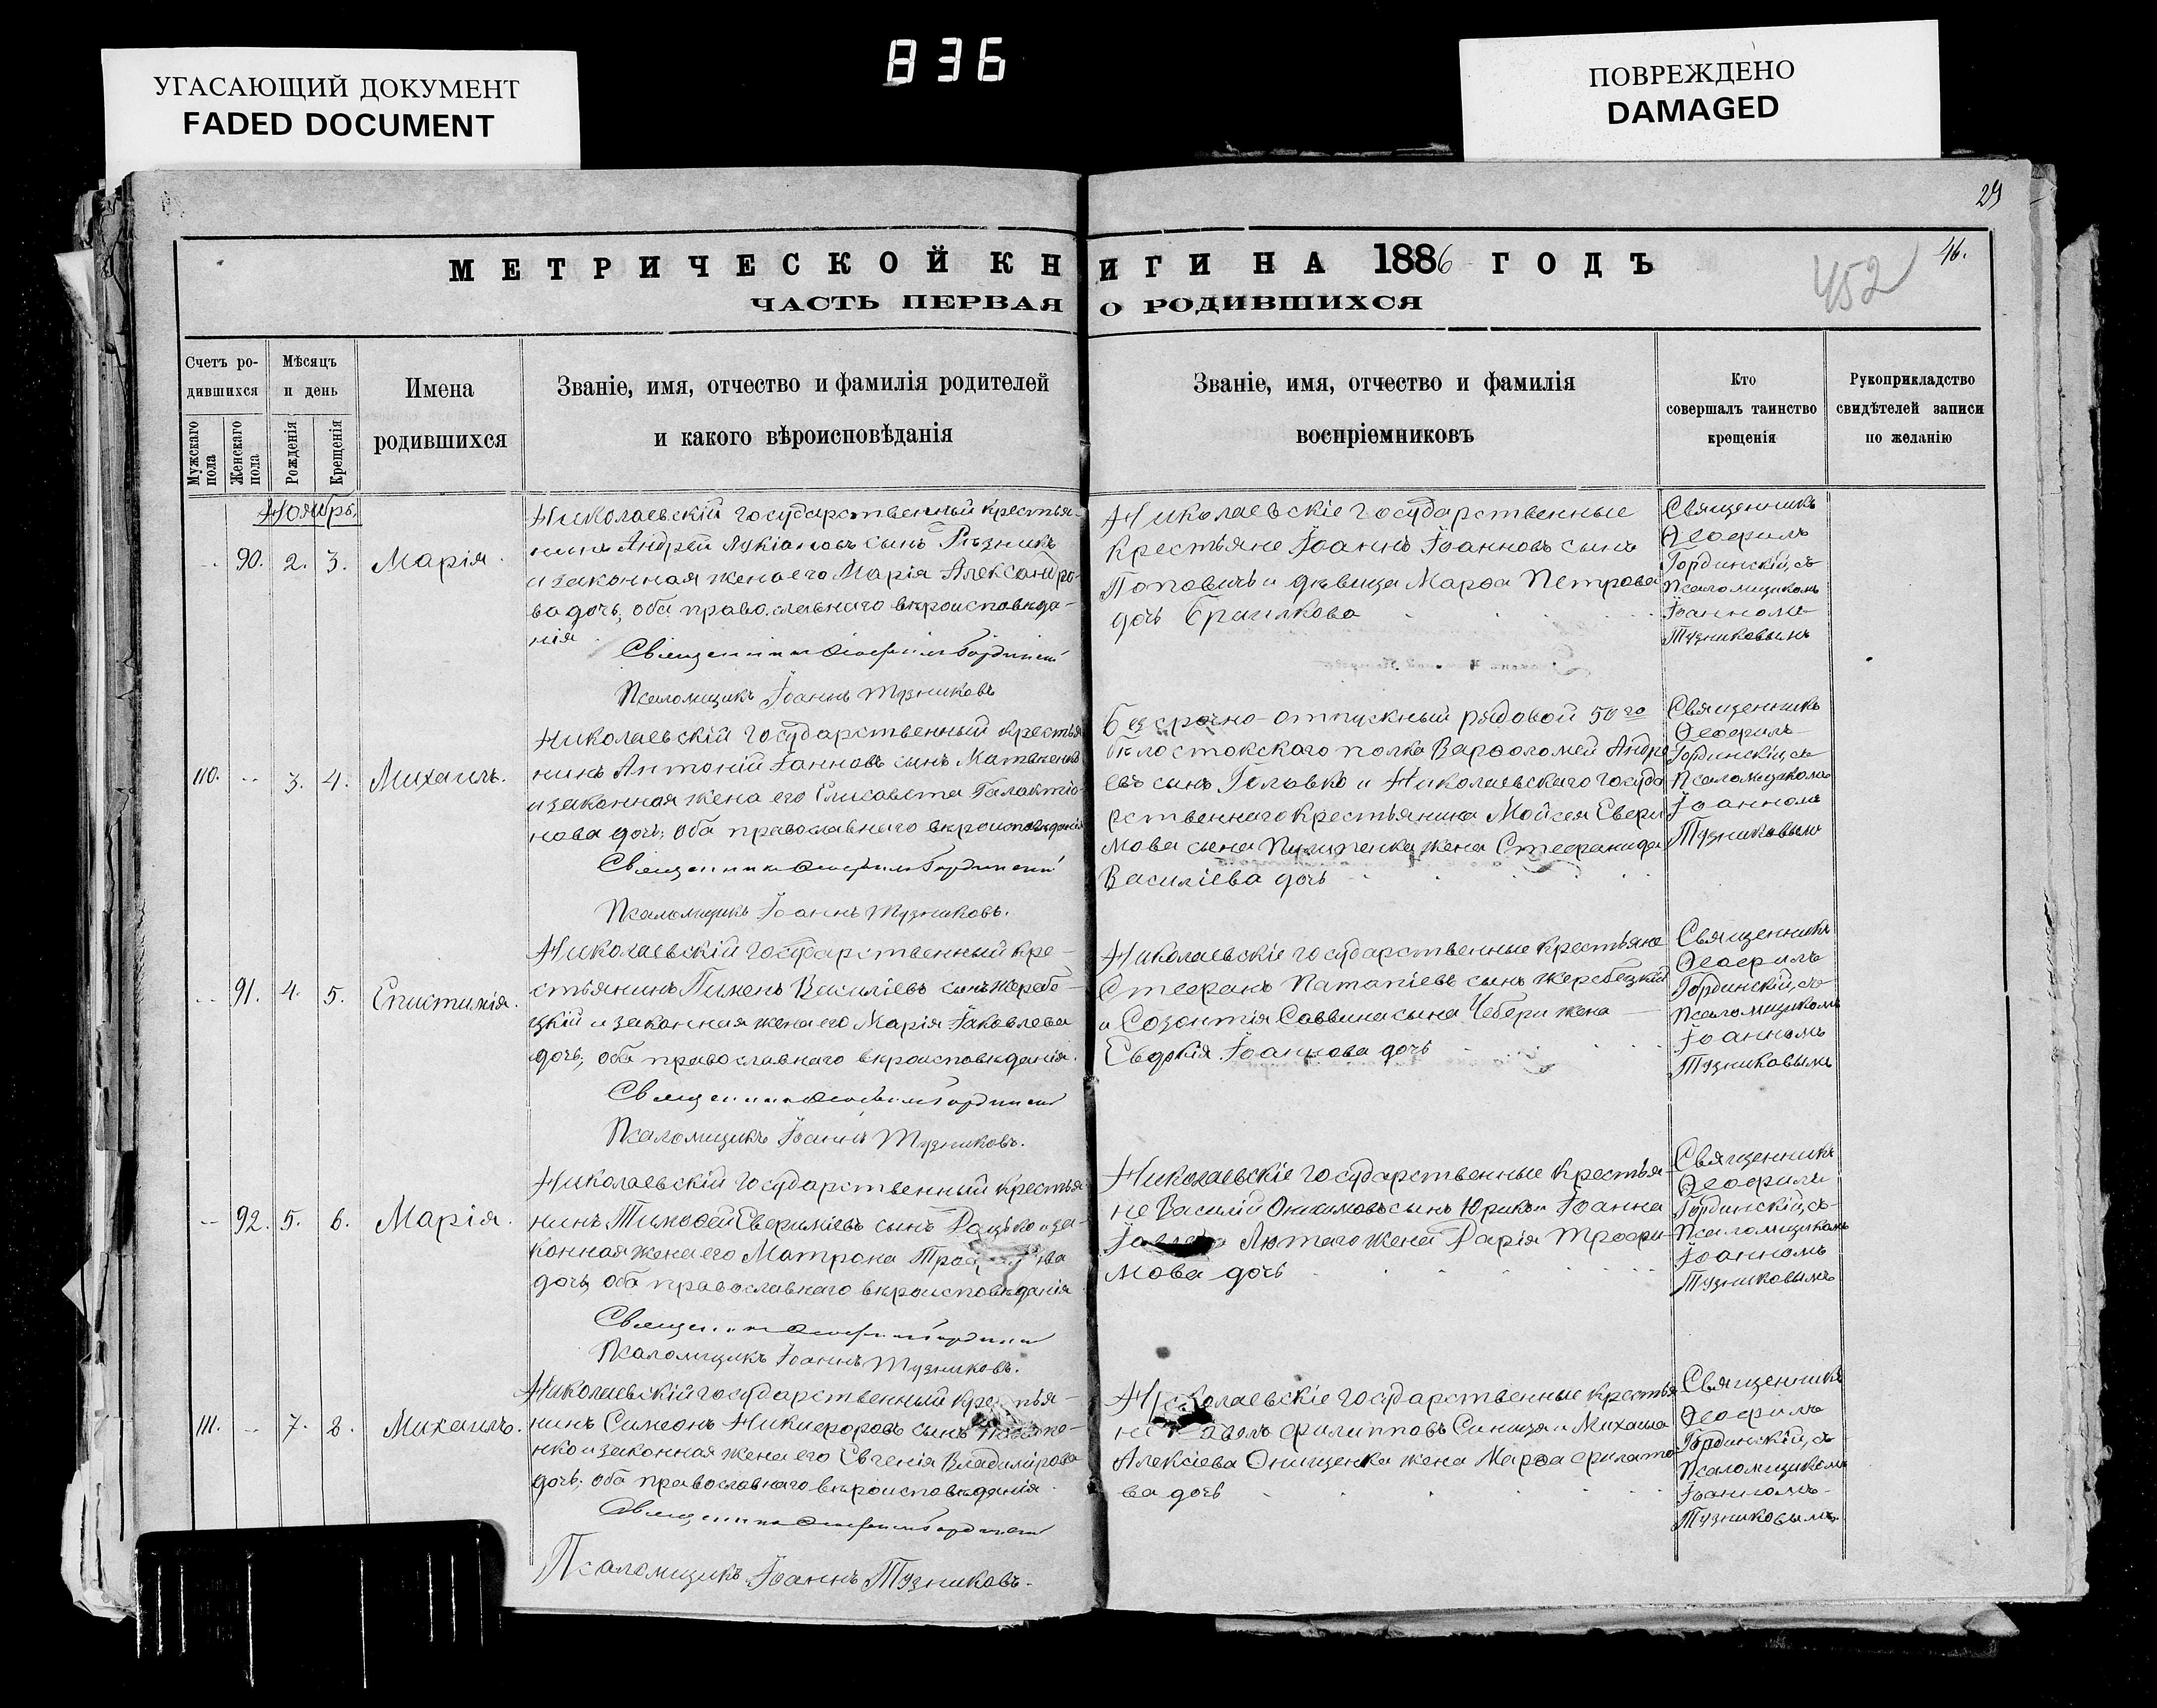 УГАСАЮЩИЙ ДОКУМЕНТ
FADED DOCUMENT
836
ПОВРЕЖДЕНО
DAMAGED
29
МЕТРИЧЕСКОЙ КНИГИ НА 1886 ГОДЪ
46.
452
ЧАСТЬ ПЕРВАЯ О РОДИВШИХСЯ
Счетъ родившихся
Мѣсяцъ и день
Имена родившихся
Званіе, имя, отчество и фамилія родителей
и какого вѣроисповѣданія
Званіе, имя, отчество и фамилія
воспріемниковъ
Кто
совершалъ таинство
крещенія
Рукоприкладство
свидѣтелей записи
по желанію
Мужскаго пола
Женскаго пола
Рожденія
Крещенія
Ноябрь.
90. 2. 3. Марія.
Николаевскій государственный крестья-
нинъ Андрей Лукіановъ сынъ Рѣзникъ
и законная жена его Марія Александро-
ва дочь, оба православнаго вѣроисповѣда-
нія
Священникъ Ѳеофилъ Гординскій
Псаломщикъ Іоаннъ Тузниковъ
Николаевскіе государственные
крестьяне Іоаннъ Іоанновъ сынъ
Поповичъ и дѣвица Марѳа Петрова
дочь
Священникъ
Ѳеофилъ
Гординскій, съ
Псаломщикомъ
Іоанномъ
Тузниковымъ
110. 3. 4. Михаилъ.
Николаевскій государственный крестья
нинъ Антоній Іоанновъ сынъ Матвѣенко
и законная жена его Елисавета Галактіо-
нова дочь; оба православнаго вѣроисповѣданія
Священникъ Ѳеофилъ Гординскій
Псаломщикъ Іоаннъ Тузниковъ.
Безсрочно-отпускный рядовой 50го
бѣлостокскаго полка Варѳоломей Андре
евъ сынъ Головко и Николаевскаго госуда
рственнаго крестьянина Мойсея Евѳи
мова сына Пилипенка жена Стефанида
Василіева дочь
Священникъ
Ѳеофилъ
Гординскій, съ
Псаломщикомъ
Іоанномъ
Тузниковымъ
91. 4. 5. Епистимія.
Николаевскій государственный кре-
стьянинъ Пименъ Василіевъ сынъ Жеребе-
цкій и законная жена его Марія Іаковлева
дочь; оба православнаго вѣроисповѣданія.
Священникъ Ѳеофилъ Гординскій
Псаломщикъ Іоаннъ Тузниковъ.
Николаевскіе государственные крестьяне
Стефанъ Патапіевъ сынъ Жеребецкій
и Созонтія Саввина сына Чебери жена
Евдокія Іоаннова дочь
Священникъ
Ѳеофилъ
Гординскій, съ
Псаломщикомъ
Іоанномъ
Тузниковымъ
92. 5. 6. Марія.
Николаевскій государственный крестья
нинъ Тимоѳей сынъ Дацько и за-
конная жена его Матрона
дочь, оба православнаго вѣроисповѣданія
Священникъ Ѳеофилъ Гординскій
Псаломщикъ Іоаннъ Тузниковъ.
Николаевскіе государственные крестья-
не Василій Онисимовъ сынъ Юрик и Іоанна
Лютаго жена Дарія Трофи
мова дочь
Священникъ
Ѳеофилъ
Гординскій, съ
Псаломщикомъ
Іоанномъ
Тузниковымъ
111. 7. 8. Михаилъ.
Николаевскій государственный крестья-
нинъ Симеонъ Никифоровъ сынъ
нко и законная жена его Евгенія Владимірова
дочь; оба православнаго вѣроисповѣданія.
Священникъ Ѳеофилъ Гординскій
Псаломщикъ Іоаннъ Тузниковъ.
Николаевскіе государственные крестья
не Филипповъ Синица и Михаила
Алексіева Онищенка жена Марѳа Филато
ва дочь
Священникъ
Ѳеофилъ
Гординскій, съ
Псаломщикомъ
Іоанномъ
Тузниковымъ